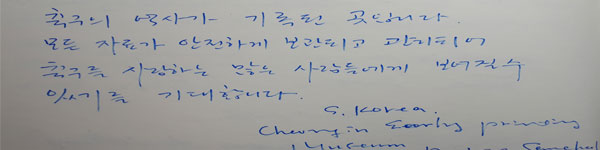 축구의 역사가 기록된 곳입니다.
모든 자료가 안전하게 보관되고 관리되어
축구를 사랑하는 많은 사람들에게 보여질 수
있기를 기대합니다.
S. Korea.
Cheongju Early printing
Museum